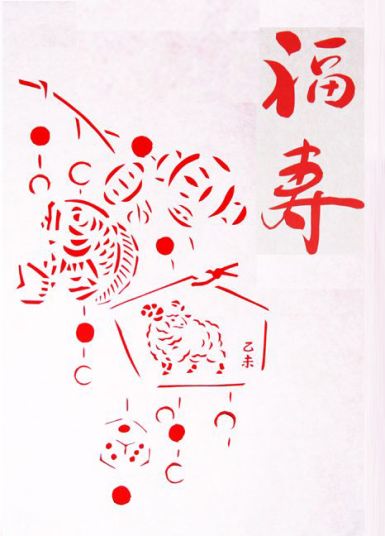 福寿
乙未